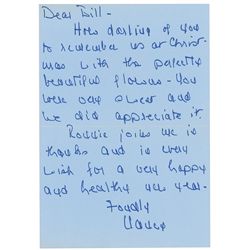 Dear Bill -
How darling of you
to remember us at Christ-
mas with the perfectly
beautiful flowers - You
were very sweet and
we did appreciate it.
Ronnie joins me in
thanks and in every
wish for a very happy
and healthy new year.
Fondly
Nancy